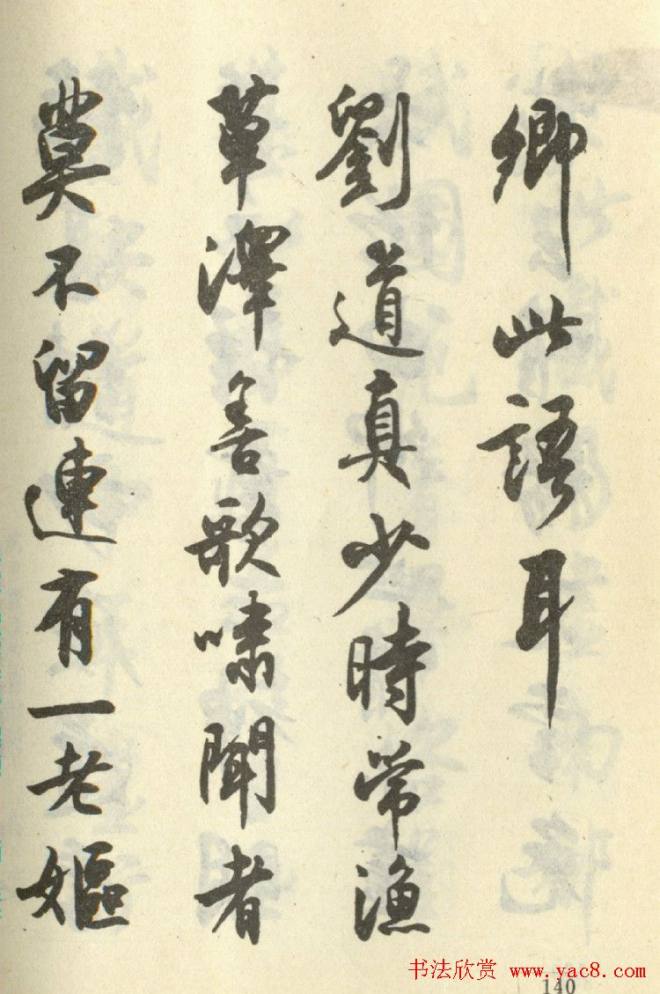 卿此語耳
劉道真少時常漁
草澤善歌嘯聞者
莫不留連有一老嫗
书法欣赏 www.yac8.com
140